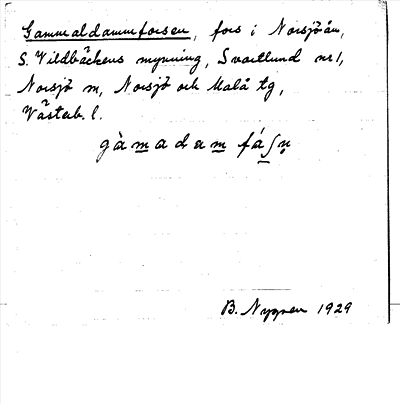 Gammaldammforsen, fors i Norsjöån,
S. Vildbäckens mynning, Svartlund nr 1,
Norsjö sn, Norsjö och Malå tg,
Västerb. l.
gàmadam fáʃn̥
B. Nygren 1929